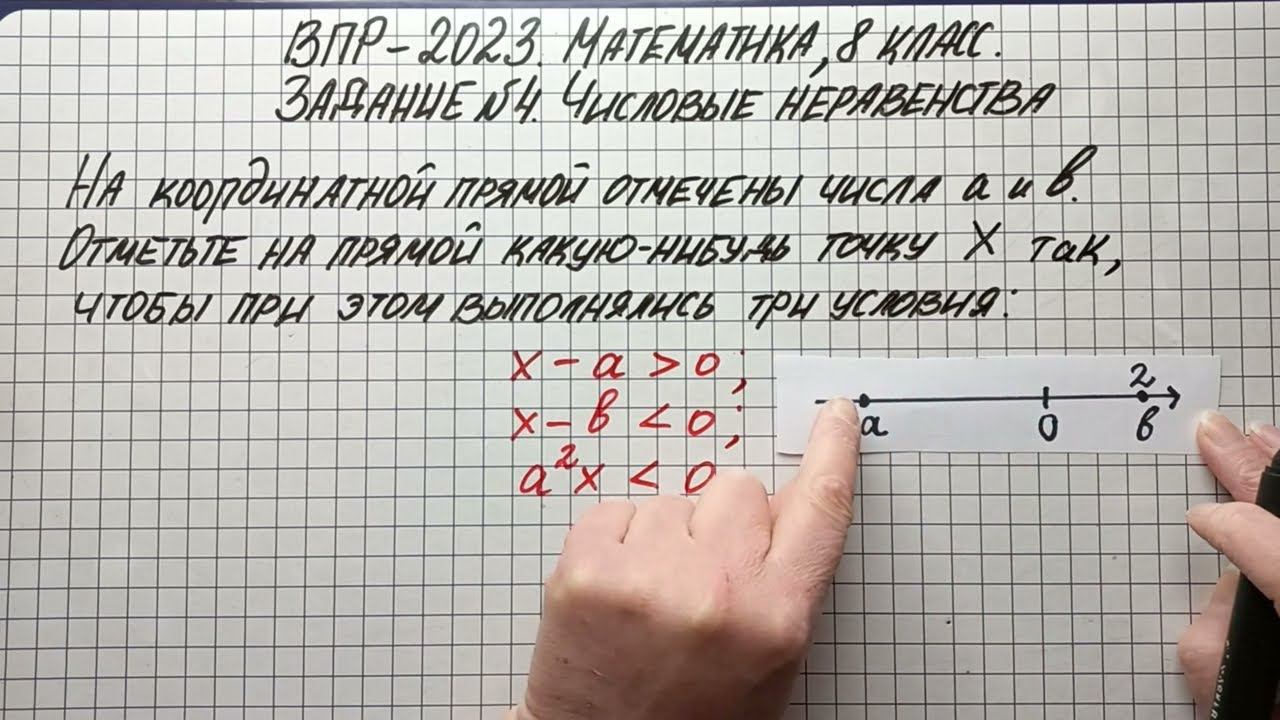 ВПР-2023. МАТЕМАТИКА, 8 КЛАСС.
ЗАДАНИЕ №4. ЧИСЛОВЫЕ НЕРАВЕНСТВА
НА КООРДИНАТНОЙ ПРЯМОЙ ОТМЕЧЕНЫ ЧИСЛА а и в.
ОТМЕТЬТЕ НА ПРЯМОЙ КАКУЮ-НИБУДЬ ТОЧКУ X ТАК,
ЧТОБЫ ПРИ ЭТОМ ВЫПОЛНЯЛИСЬ ТРИ УСЛОВИЯ:
x - a > 0;
x - в < 0;
a²x < 0
2
a 0 в